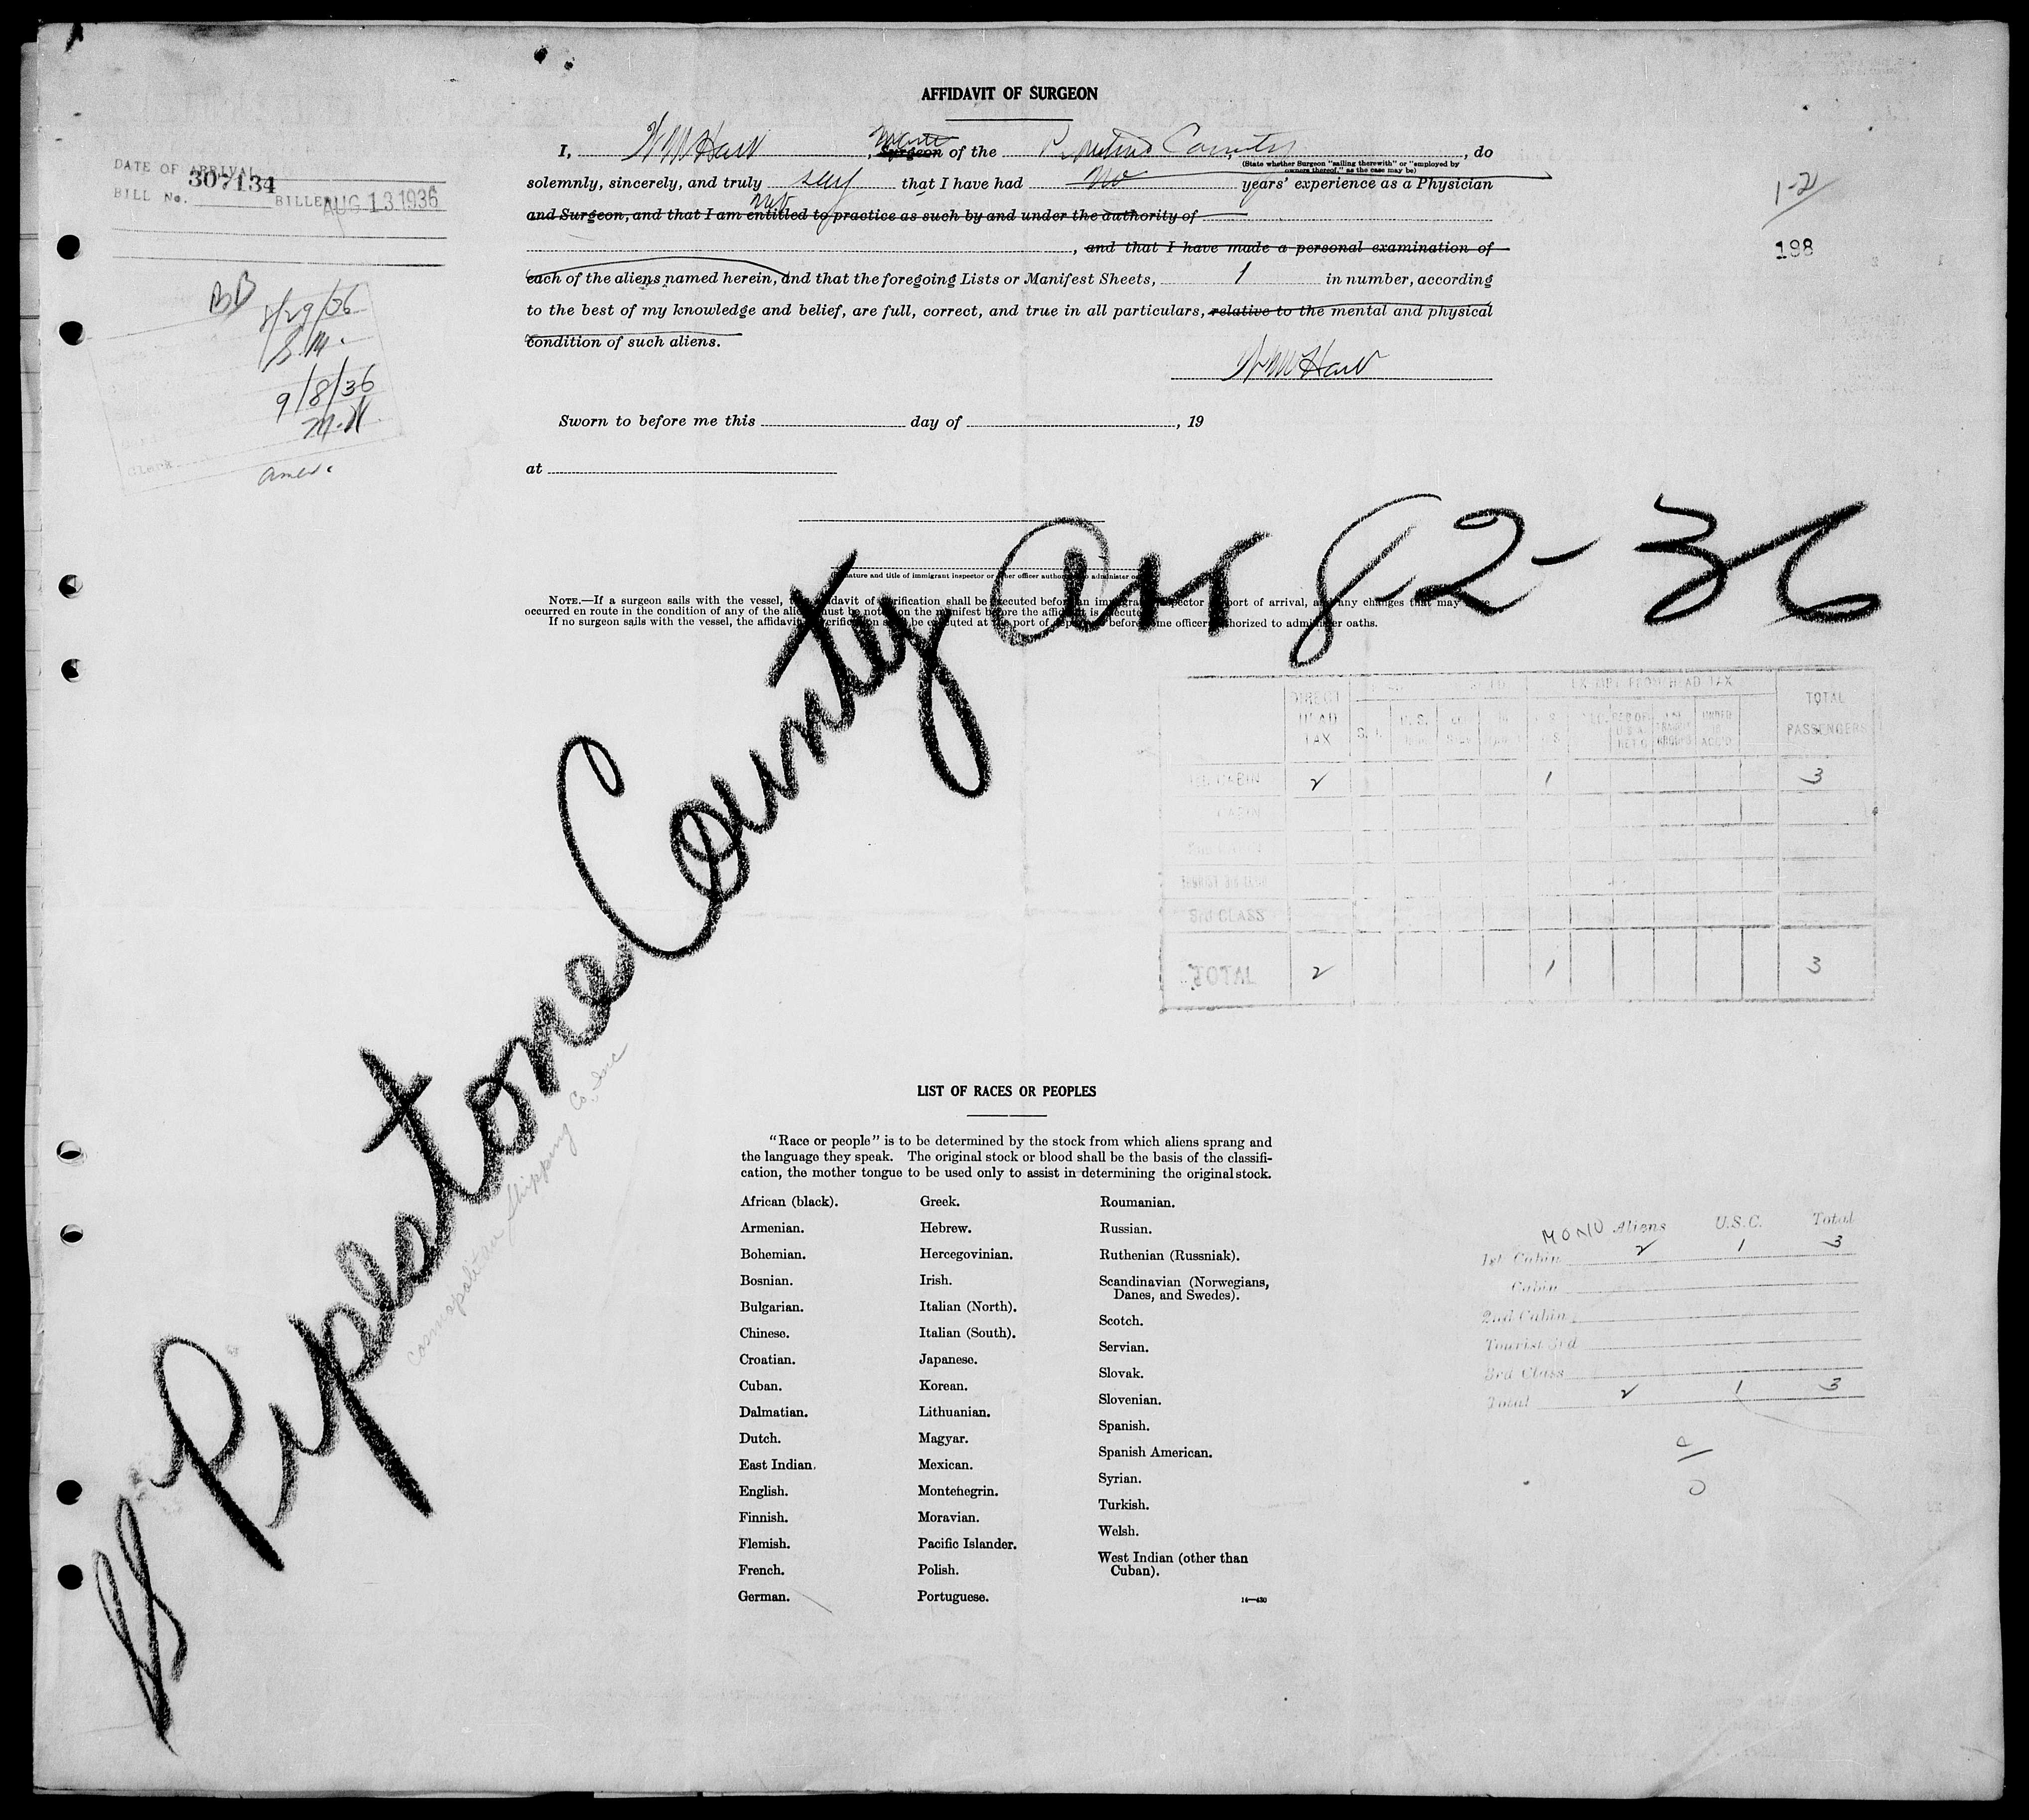 AFFIDAVIT OF SURGEON
I, Wm Hart, Master Surgeon of the Pipestone County, do
(State whether Surgeon "sailing therewith" or "employed by
owners thereof," as the case may be)
solemnly, sincerely, and truly that I have had no years' experience as a Physician
and Surgeon, and that I am not entitled to practice as such by and under the authority of
, and that I have made a personal examination of
each of the aliens named herein, and that the foregoing Lists or Manifest Sheets, 1 in number, according
to the best of my knowledge and belief, are full, correct, and true in all particulars, relative to the mental and physical
condition of such aliens.
Wm Hart
Sworn to before me this day of , 19
at
DATE OF ARRIVAL
307134
BILL No. BILLED AUG 13 1936
BB
8/29/36
S.M.
9/8/36
M.K.
Clerk
1-2
198
(Signature and title of immigrant inspector or other officer authorized to administer oaths)
NOTE.—If a surgeon sails with the vessel, the affidavit of verification shall be executed before an immigrant inspector at port of arrival, and any changes that may have
occurred en route in the condition of any of the aliens must be noted on the manifest before the affidavit is executed.
If no surgeon sails with the vessel, the affidavit of verification shall be executed at the port of departure before some officer authorized to administer oaths.
SS Pipestone County arr 8-2-36
Cosmopolitan Shipping Co. Inc
DIRECT HEAD TAX
EXEMPT FROM HEAD TAX
TOTAL PASSENGERS
1st CABIN 2 1 3
CABIN
3rd CLASS
TOTAL 2 1 3
LIST OF RACES OR PEOPLES
"Race or people" is to be determined by the stock from which aliens sprang and
the language they speak. The original stock or blood shall be the basis of the classifi-
cation, the mother tongue to be used only to assist in determining the original stock.
African (black).
Armenian.
Bohemian.
Bosnian.
Bulgarian.
Chinese.
Croatian.
Cuban.
Dalmatian.
Dutch.
East Indian.
English.
Finnish.
Flemish.
French.
German.
Greek.
Hebrew.
Hercegovinian.
Irish.
Italian (North).
Italian (South).
Japanese.
Korean.
Lithuanian.
Magyar.
Mexican.
Montenegrin.
Moravian.
Pacific Islander.
Polish.
Portuguese.
Roumanian.
Russian.
Ruthenian (Russniak).
Scandinavian (Norwegians,
Danes, and Swedes).
Scotch.
Servian.
Slovak.
Slovenian.
Spanish.
Spanish American.
Syrian.
Turkish.
Welsh.
West Indian (other than
Cuban).
14—430
Aliens U.S.C. Total
1st Cabin 2 1 3
Cabin
2nd Cabin
Tourist 3rd
3rd Class
Total 2 1 3